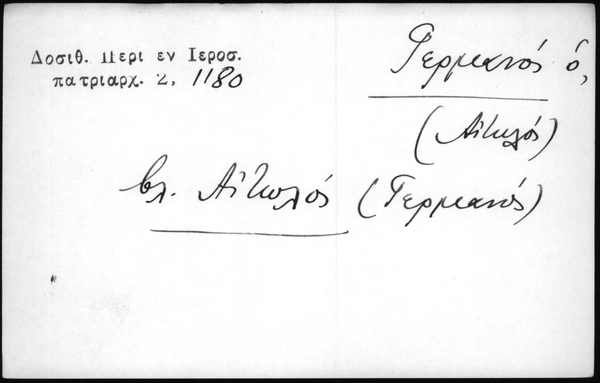 Δοσιθ. Περι εν Ιεροσ.
πατριαρχ. 2, 1180
Γερμανός ὁ,
(Αἰτωλός)
βλ. Αἰτωλός (Γερμανός)